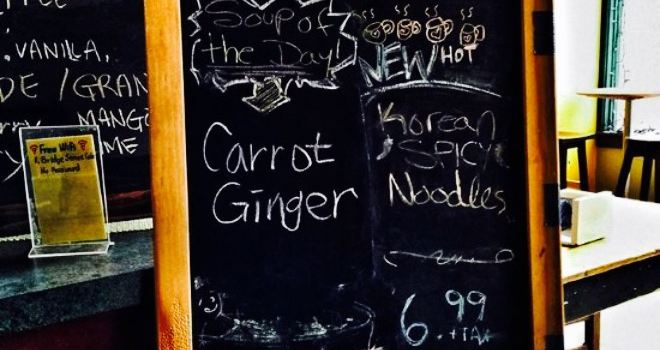 VANILLA,
DE / GRAN
MANG
Free Wifi
No Password
Soup of
the Day!
Carrot
Ginger
NEW HOT
Korean
SPICY
Noodles
6.99
+TAX